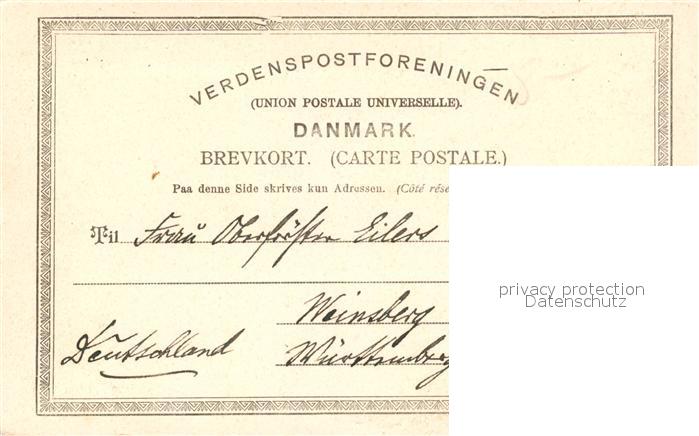 VERDENSPOSTFORENINGEN
(UNION POSTALE UNIVERSELLE).
DANMARK.
BREVKORT. (CARTE POSTALE.)
Paa denne Side skrives kun Adressen. (Côté rése
Til Frau Oberförster Eilers
privacy protection
Datenschutz
Weinsberg
Deutschland Württemberg